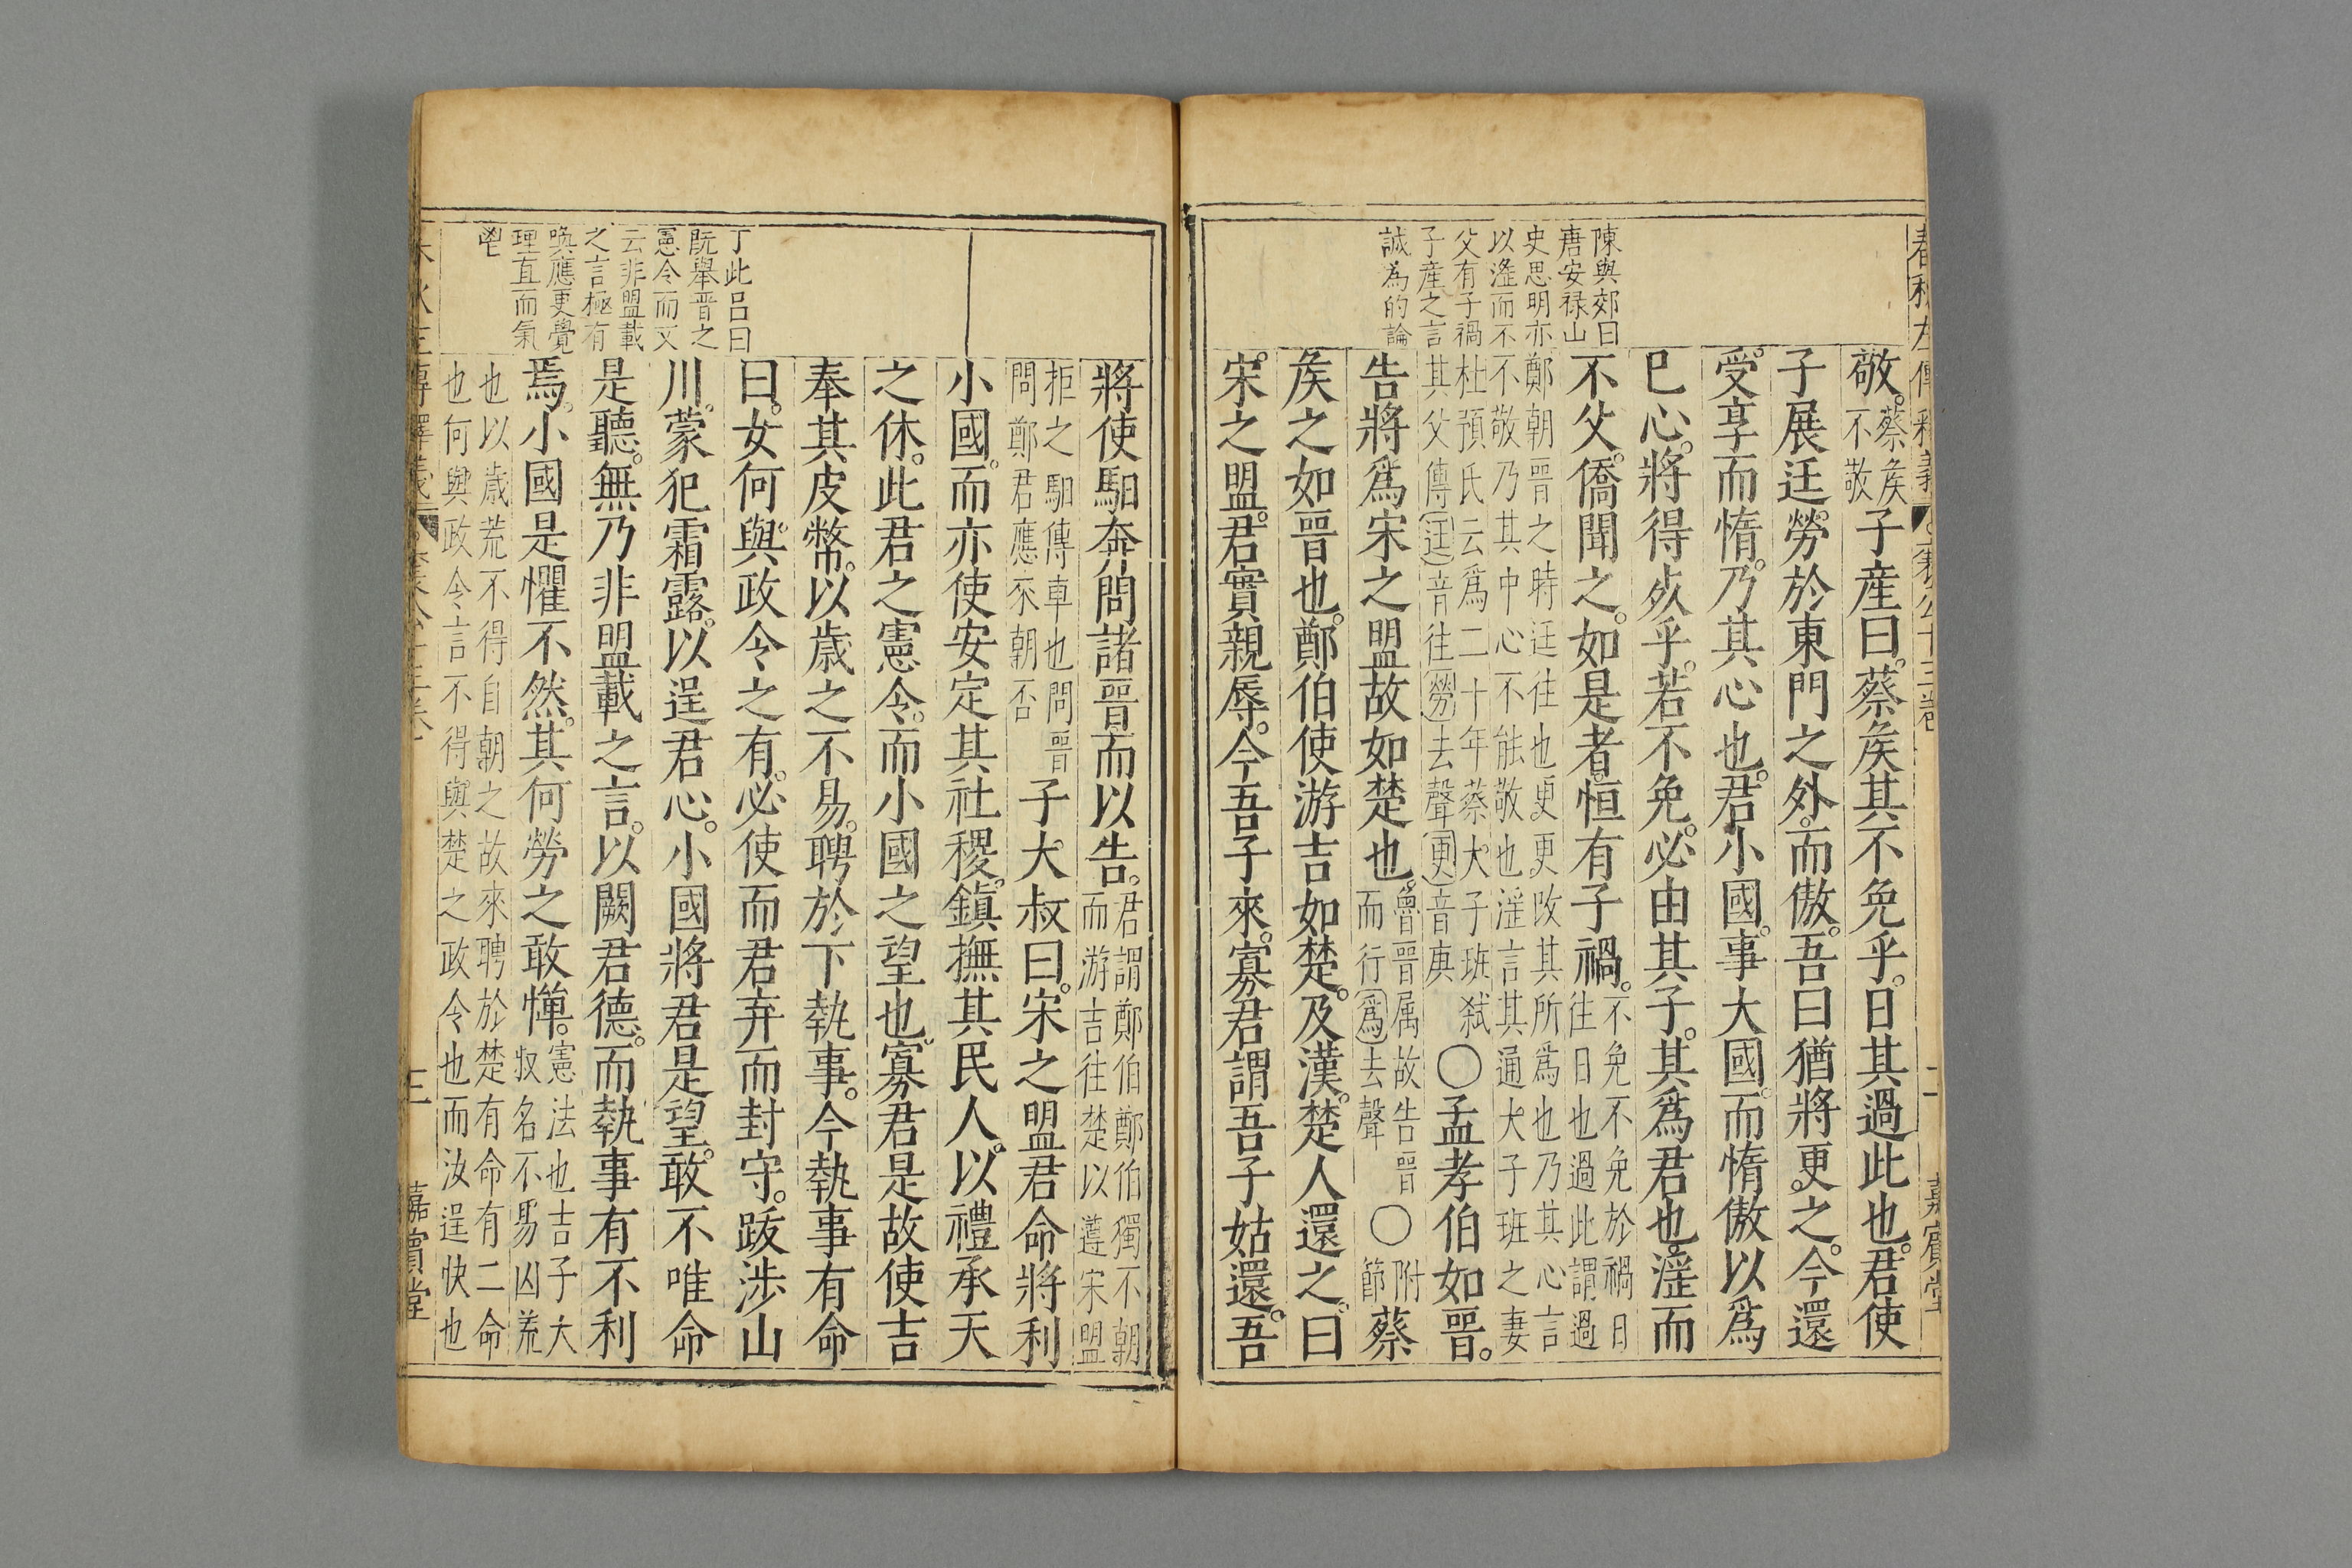 陳與郊曰
唐安禄山
史思明亦
以滛而不
父有子禍
子產之言
誠為的論
敬。蔡矦不敬子産曰。蔡矦其不免乎。日其過此也。君使
子展廷勞於東門之外。而傲。吾曰猶將更之。今還
受享而惰。乃其心也。君小國。事大國。而惰傲以爲
已心。將得死乎。若不免。必由其子。其爲君也。滛而
不父。僑聞之。如是者。恒有子禍。不免不免於禍日往日也過此謂過
鄭朝晋之時廷往也更更改其所爲也乃其心言不敬乃其中心不能敬也滛言其通大子班之妻
杜預氏云爲二十年蔡大子班弑其父傳廷音往勞去聲更音庚〇孟孝伯如晋。
告將爲宋之盟故如楚也。魯晋属故告晋而行爲去聲〇附節蔡
矦之如晋也。鄭伯使游吉如楚。及漢。楚人還之。曰
宋之盟。君實親辱。今吾子來。寡君謂吾子姑還。吾
丁此吕曰
既舉晋之
憲令而又
云非盟載
之言極有
喚應更覺
理直而氣
將使馹奔問諸晋而以告。君謂鄭伯鄭伯獨不朝而游吉往楚以遵宋盟
拒之馹傳車也問晋問鄭君應來朝否子大叔曰。宋之盟君命將利
小國。而亦使安定其社稷。鎮撫其民人。以禮承天
之休。此君之憲令。而小國之望也。寡君是故使吉
奉其皮幣。以歲之不易。聘於下執事。今執事有命
曰。女何與政令之有。必使而君弃而封守。跋涉山
川。蒙犯霜露。以逞君心。小國將君是望。敢不唯命
是聽。無乃非盟載之言。以闕君德。而執事有不利
焉。小國是懼不然。其何勞之敢憚。憲法也吉子大叔名不易凶荒
也以歲荒不得自朝之故來聘於楚有命有二命也何與政令言不得與楚之政令也而汝逞快也
三
嘉賓堂